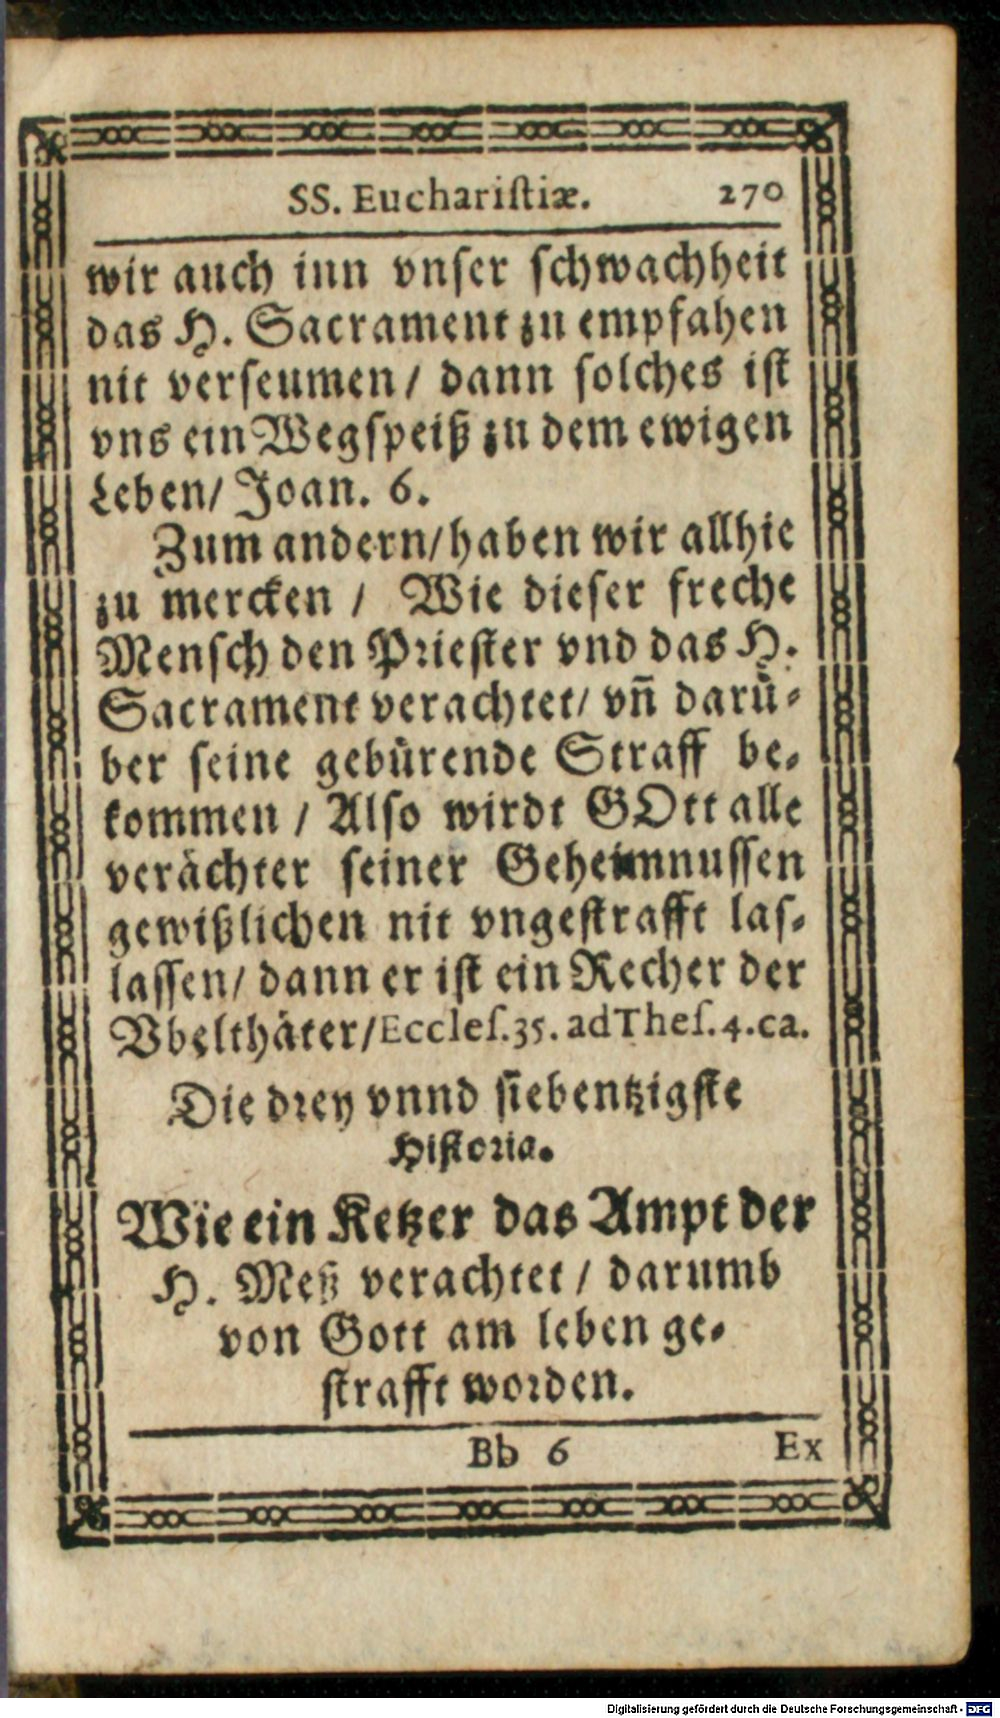 SS. Euchariſtiæ. 270
wir auch inn vnſer ſchwachheit
das H. Sacrament zu empfahen
nit verſeumen / dann ſolches iſt
vns ein Wegſpeiß zu dem ewigen
Leben / Joan. 6.
Zum andern / haben wir allhie
zu mercken / Wie dieſer freche
Menſch den Prieſter vnd das H.
Sacrament verachtet / vñ darü-
ber ſeine gebürende Straff be-
kommen / Alſo wirdt GOtt alle
verächter ſeiner Geheimnuſſen
gewißlichen nit vngeſtrafft laſ-
laſſen / dann er iſt ein Recher der
Vbelthäter / Eccleſ. 35. ad Theſ. 4. ca.
Die drey vnnd ſiebentzigſte
Hiſtoria.
Wie ein Ketzer das Ampt der
H. Meß verachtet / darumb
von Gott am leben ge-
ſtrafft worden.
Bb 6 Ex
Digitalisierung gefördert durch die Deutsche Forschungsgemeinschaft - DFG